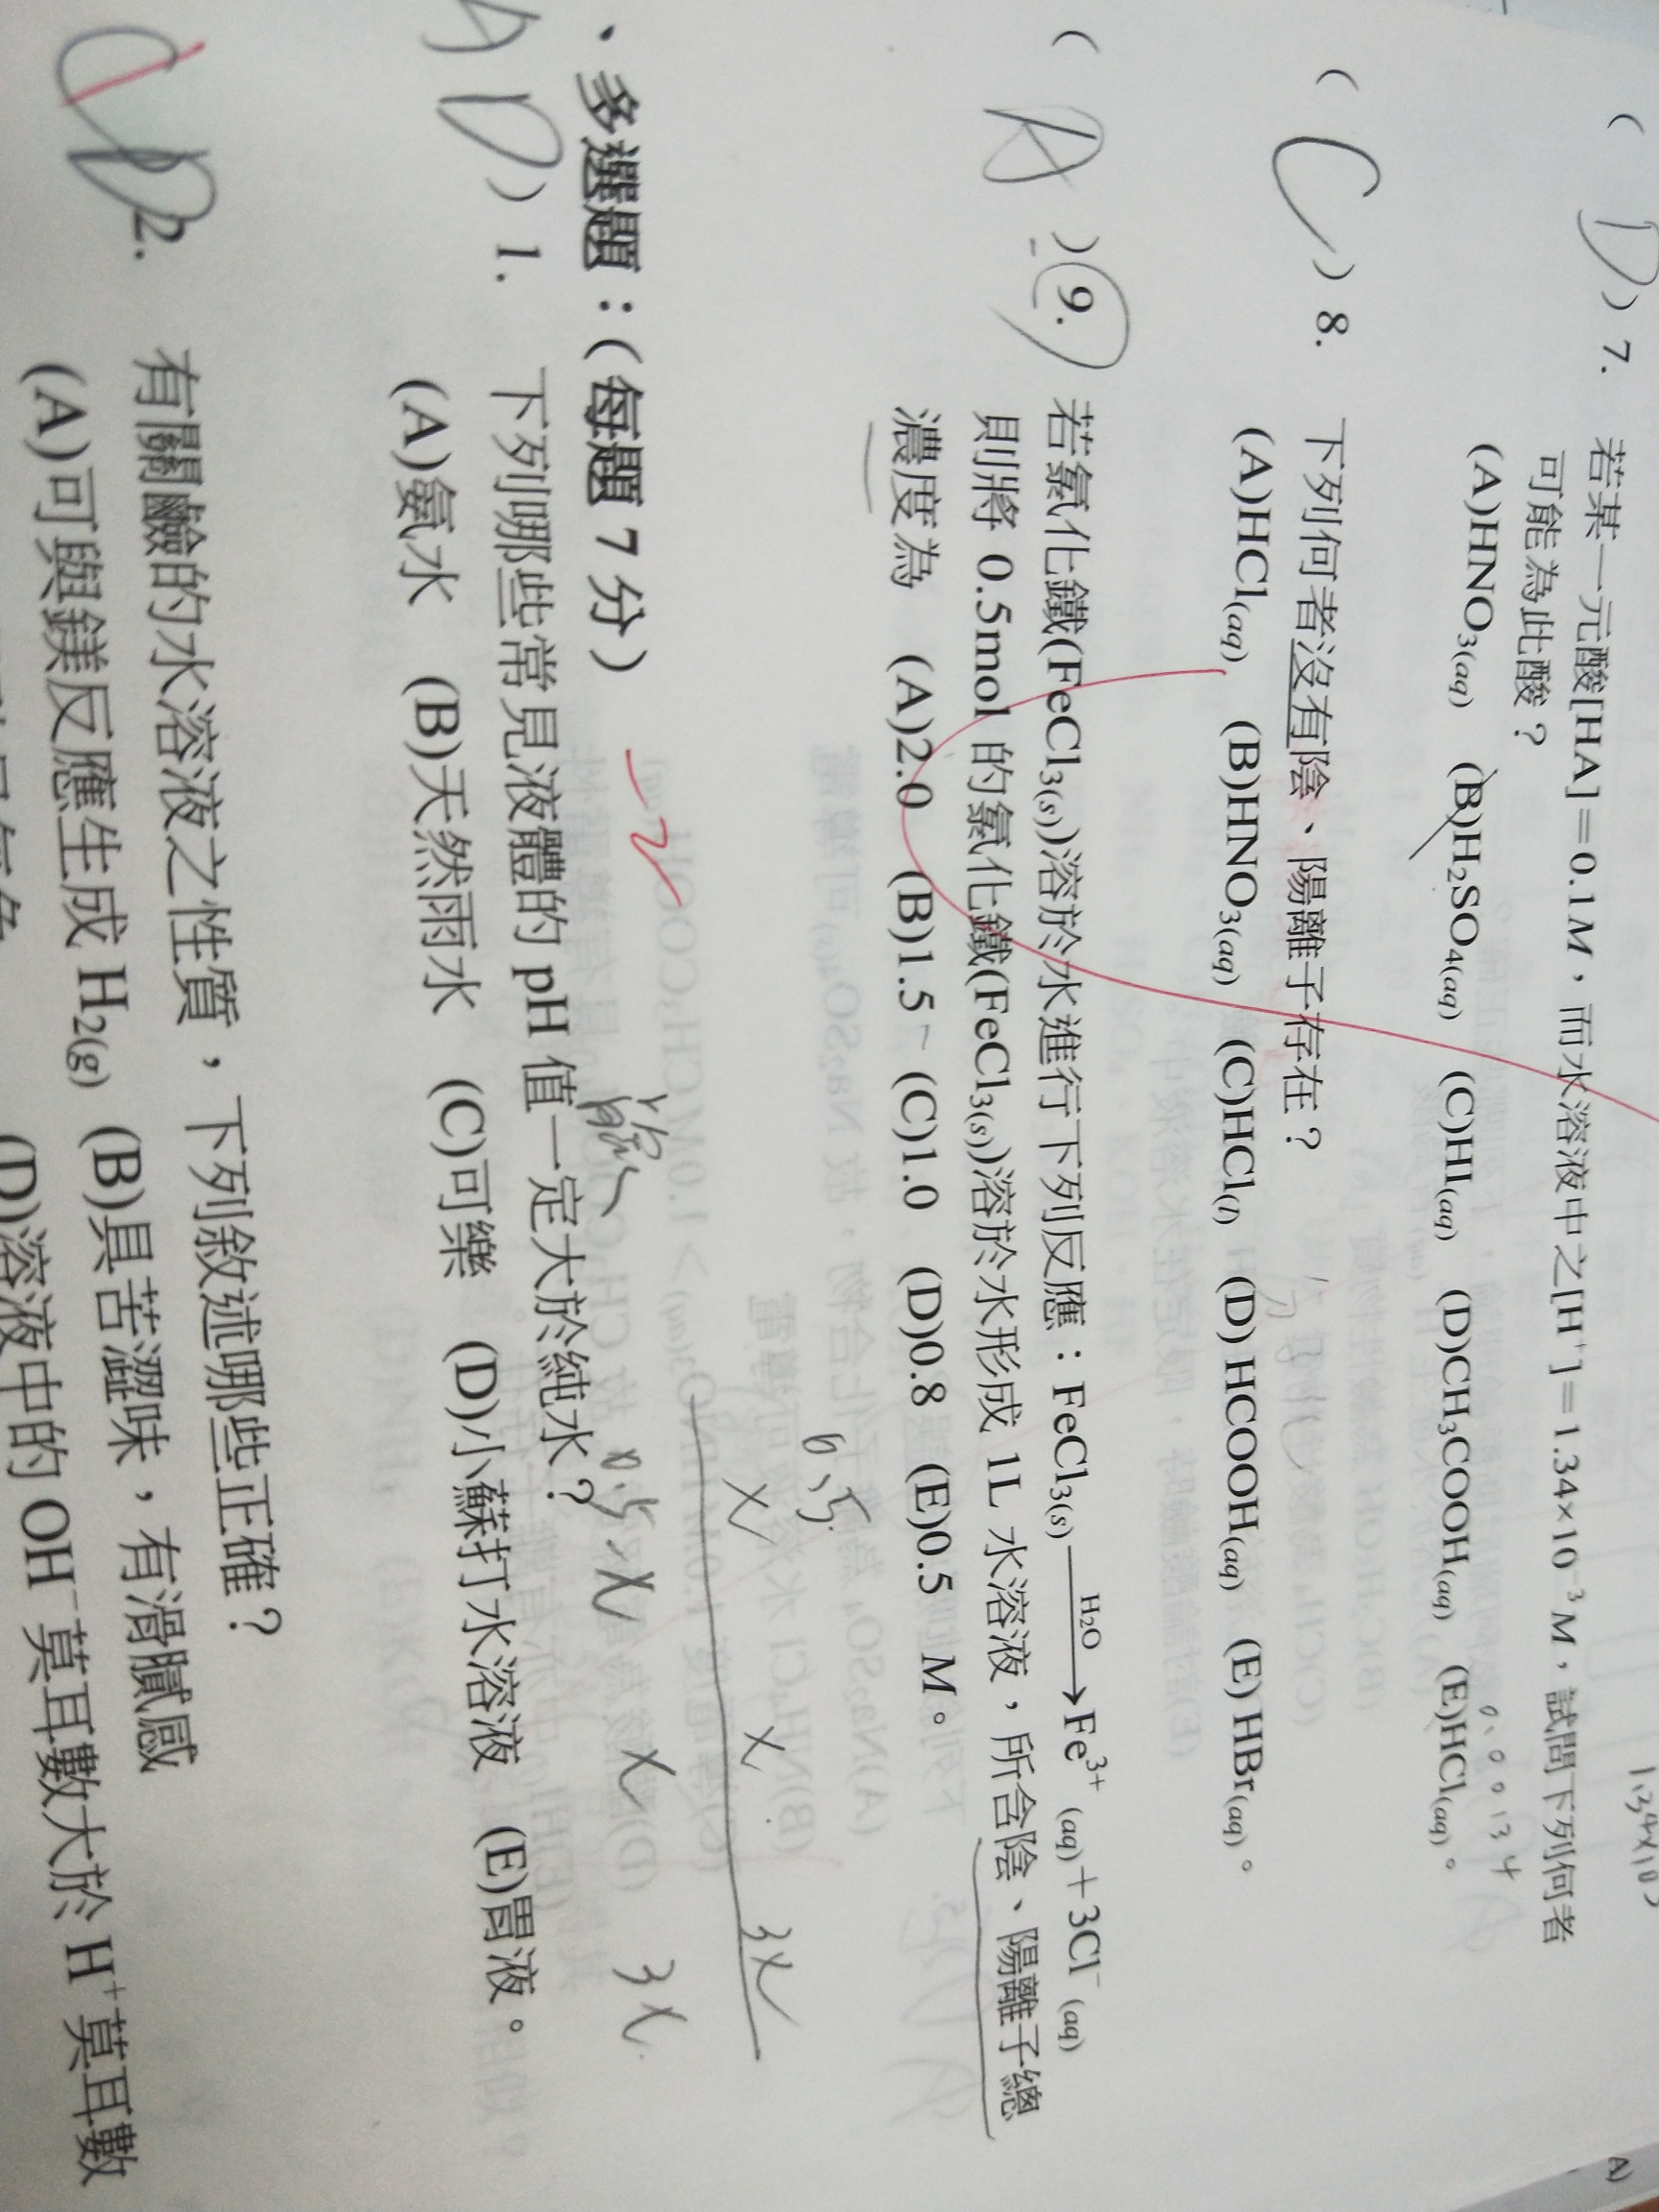 1.34×10
(D)7. 若某一元酸[HA]=0.1M,而水溶液中之[H⁺]=1.34×10⁻³M,試問下列何者
可能為此酸?
0.00134
(A)HNO₃(aq) (B)H₂SO₄(aq) (C)HI(aq) (D)CH₃COOH(aq) (E)HCl(aq)。
(C)8. 下列何者沒有陰、陽離子存在?
(A)HCl(aq) (B)HNO₃(aq) (C)HCl(l) (D)HCOOH(aq) (E)HBr(aq)。
(A)9. 若氯化鐵(FeCl₃(s))溶於水進行下列反應:FeCl₃(s) H₂O→ Fe³⁺(aq)+3Cl⁻(aq)
則將 0.5mol 的氯化鐵(FeCl₃(s))溶於水形成 1L 水溶液,所含陰、陽離子總
濃度為 (A)2.0 (B)1.5 (C)1.0 (D)0.8 (E)0.5 M。
0.5
x x 3x
0.5-x x 3x
、多選題:(每題 7 分) -2
(AD)1. 下列哪些常見液體的 pH 值一定大於純水?
(A)氨水 (B)天然雨水 (C)可樂 (D)小蘇打水溶液 (E)胃液。
CD 2. 有關鹼的水溶液之性質,下列敘述哪些正確?
(A)可與鎂反應生成 H₂(g) (B)具苦澀味,有滑膩感
(D)溶液中的 OH⁻莫耳數大於 H⁺莫耳數